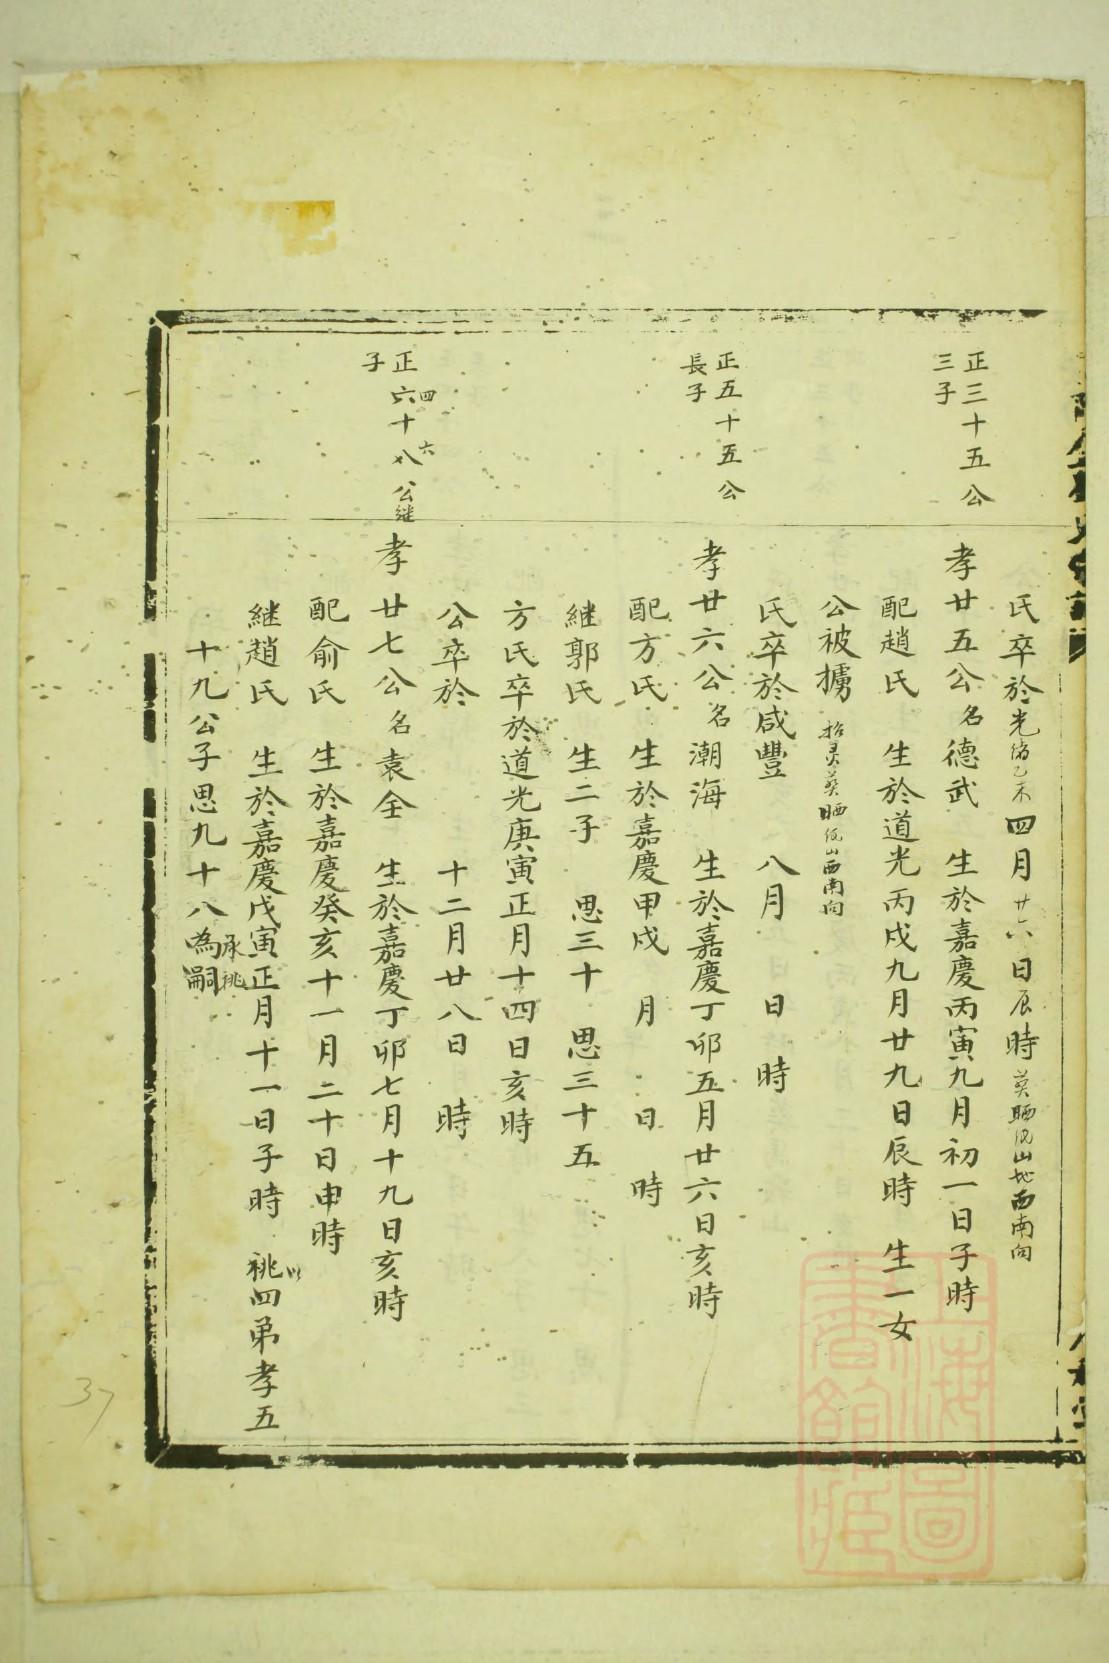 氏卒於光緒乙未四月廿六日辰時 葬晒紙山地西南向
正三十五公
三子
孝廿五公名德武 生於嘉慶丙寅九月初一日子時
配趙氏 生於道光丙戌九月廿九日辰時 生一女
公被擄 招灵葬晒紙山西南向
氏卒於咸豐 八月 日 時
正五十五公
長子
孝廿六公名潮海 生於嘉慶丁卯五月廿六日亥時
配方氏 生於嘉慶甲戌 月 日 時
継郭氏 生二子 思三十 思三十五
方氏卒於道光庚寅正月十四日亥時
公卒於 十二月廿八日 時
正六十八公継
四六
子
孝廿七公名袁全 生於嘉慶丁卯七月十九日亥時
配俞氏 生於嘉慶癸亥十一月二十日申時
継趙氏 生於嘉慶戊寅正月十一日子時 以祧四弟孝五
十九公子思九十八承祧為嗣
37
上海圖
書館藏